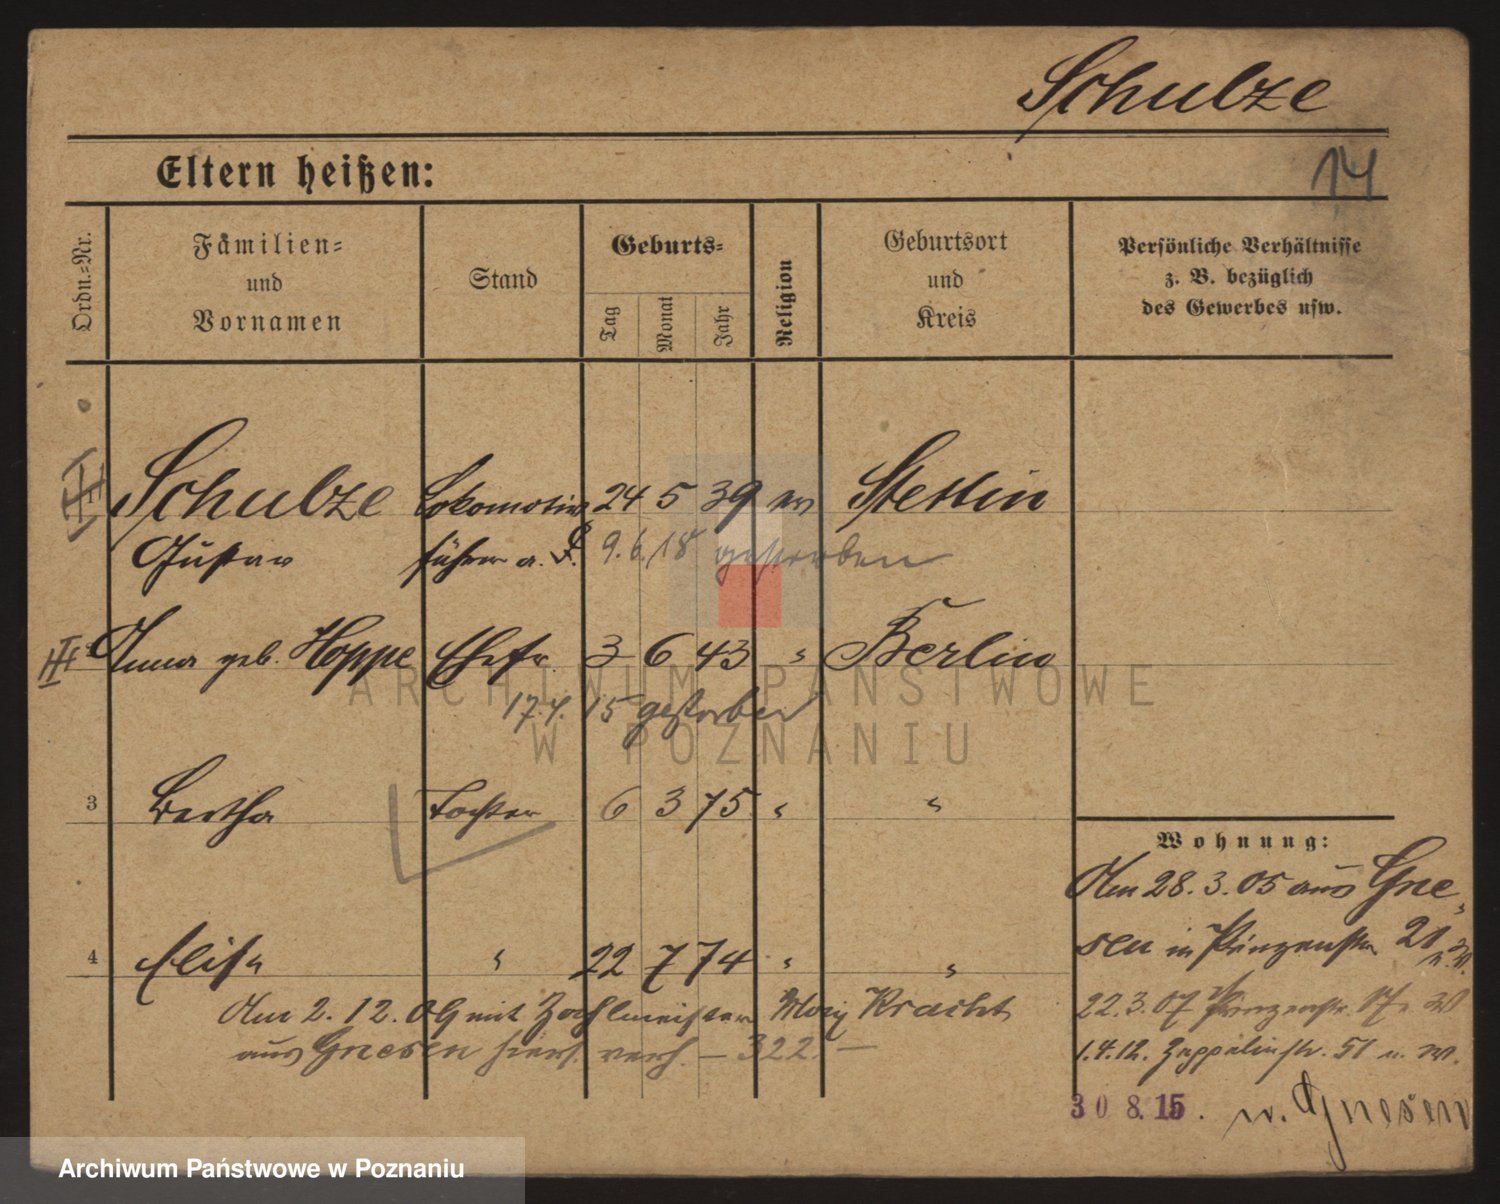 Schulze
Eltern heißen:
14
Ordn.-Nr.
Familien-
und
Vornamen
Stand
Geburts-
Tag
Monat
Jahr
Religion
Geburtsort
und
Kreis
Persönliche Verhältnisse
z. B. bezüglich
des Gewerbes usw.
Schulze Lokomotiv 24 5 39 ev Stettin
Gustav führer a. D. 9.6.18 gestorben
Anna geb. Hoppe Ehefr. 3 6 43 " Berlin
17.4.15 gestorben
ARCHIWUM PAŃSTWOWE
W POZNANIU
3 Bertha Tochter 6 3 75 " "
4 Elise " 22 7 74 " "
Am 2.12.06 mit Zahlmeister Kracht
aus Gnesen hiers. verh. – 322 –
Wohnung:
Am 28.3.05 aus Gne-
sen in Prinzenstr. 21
22.3.07 Prinzenstr.
1.4.12. Zeppelinstr. 51 n. W.
30 8. 15. n. Gnesen
Archiwum Państwowe w Poznaniu